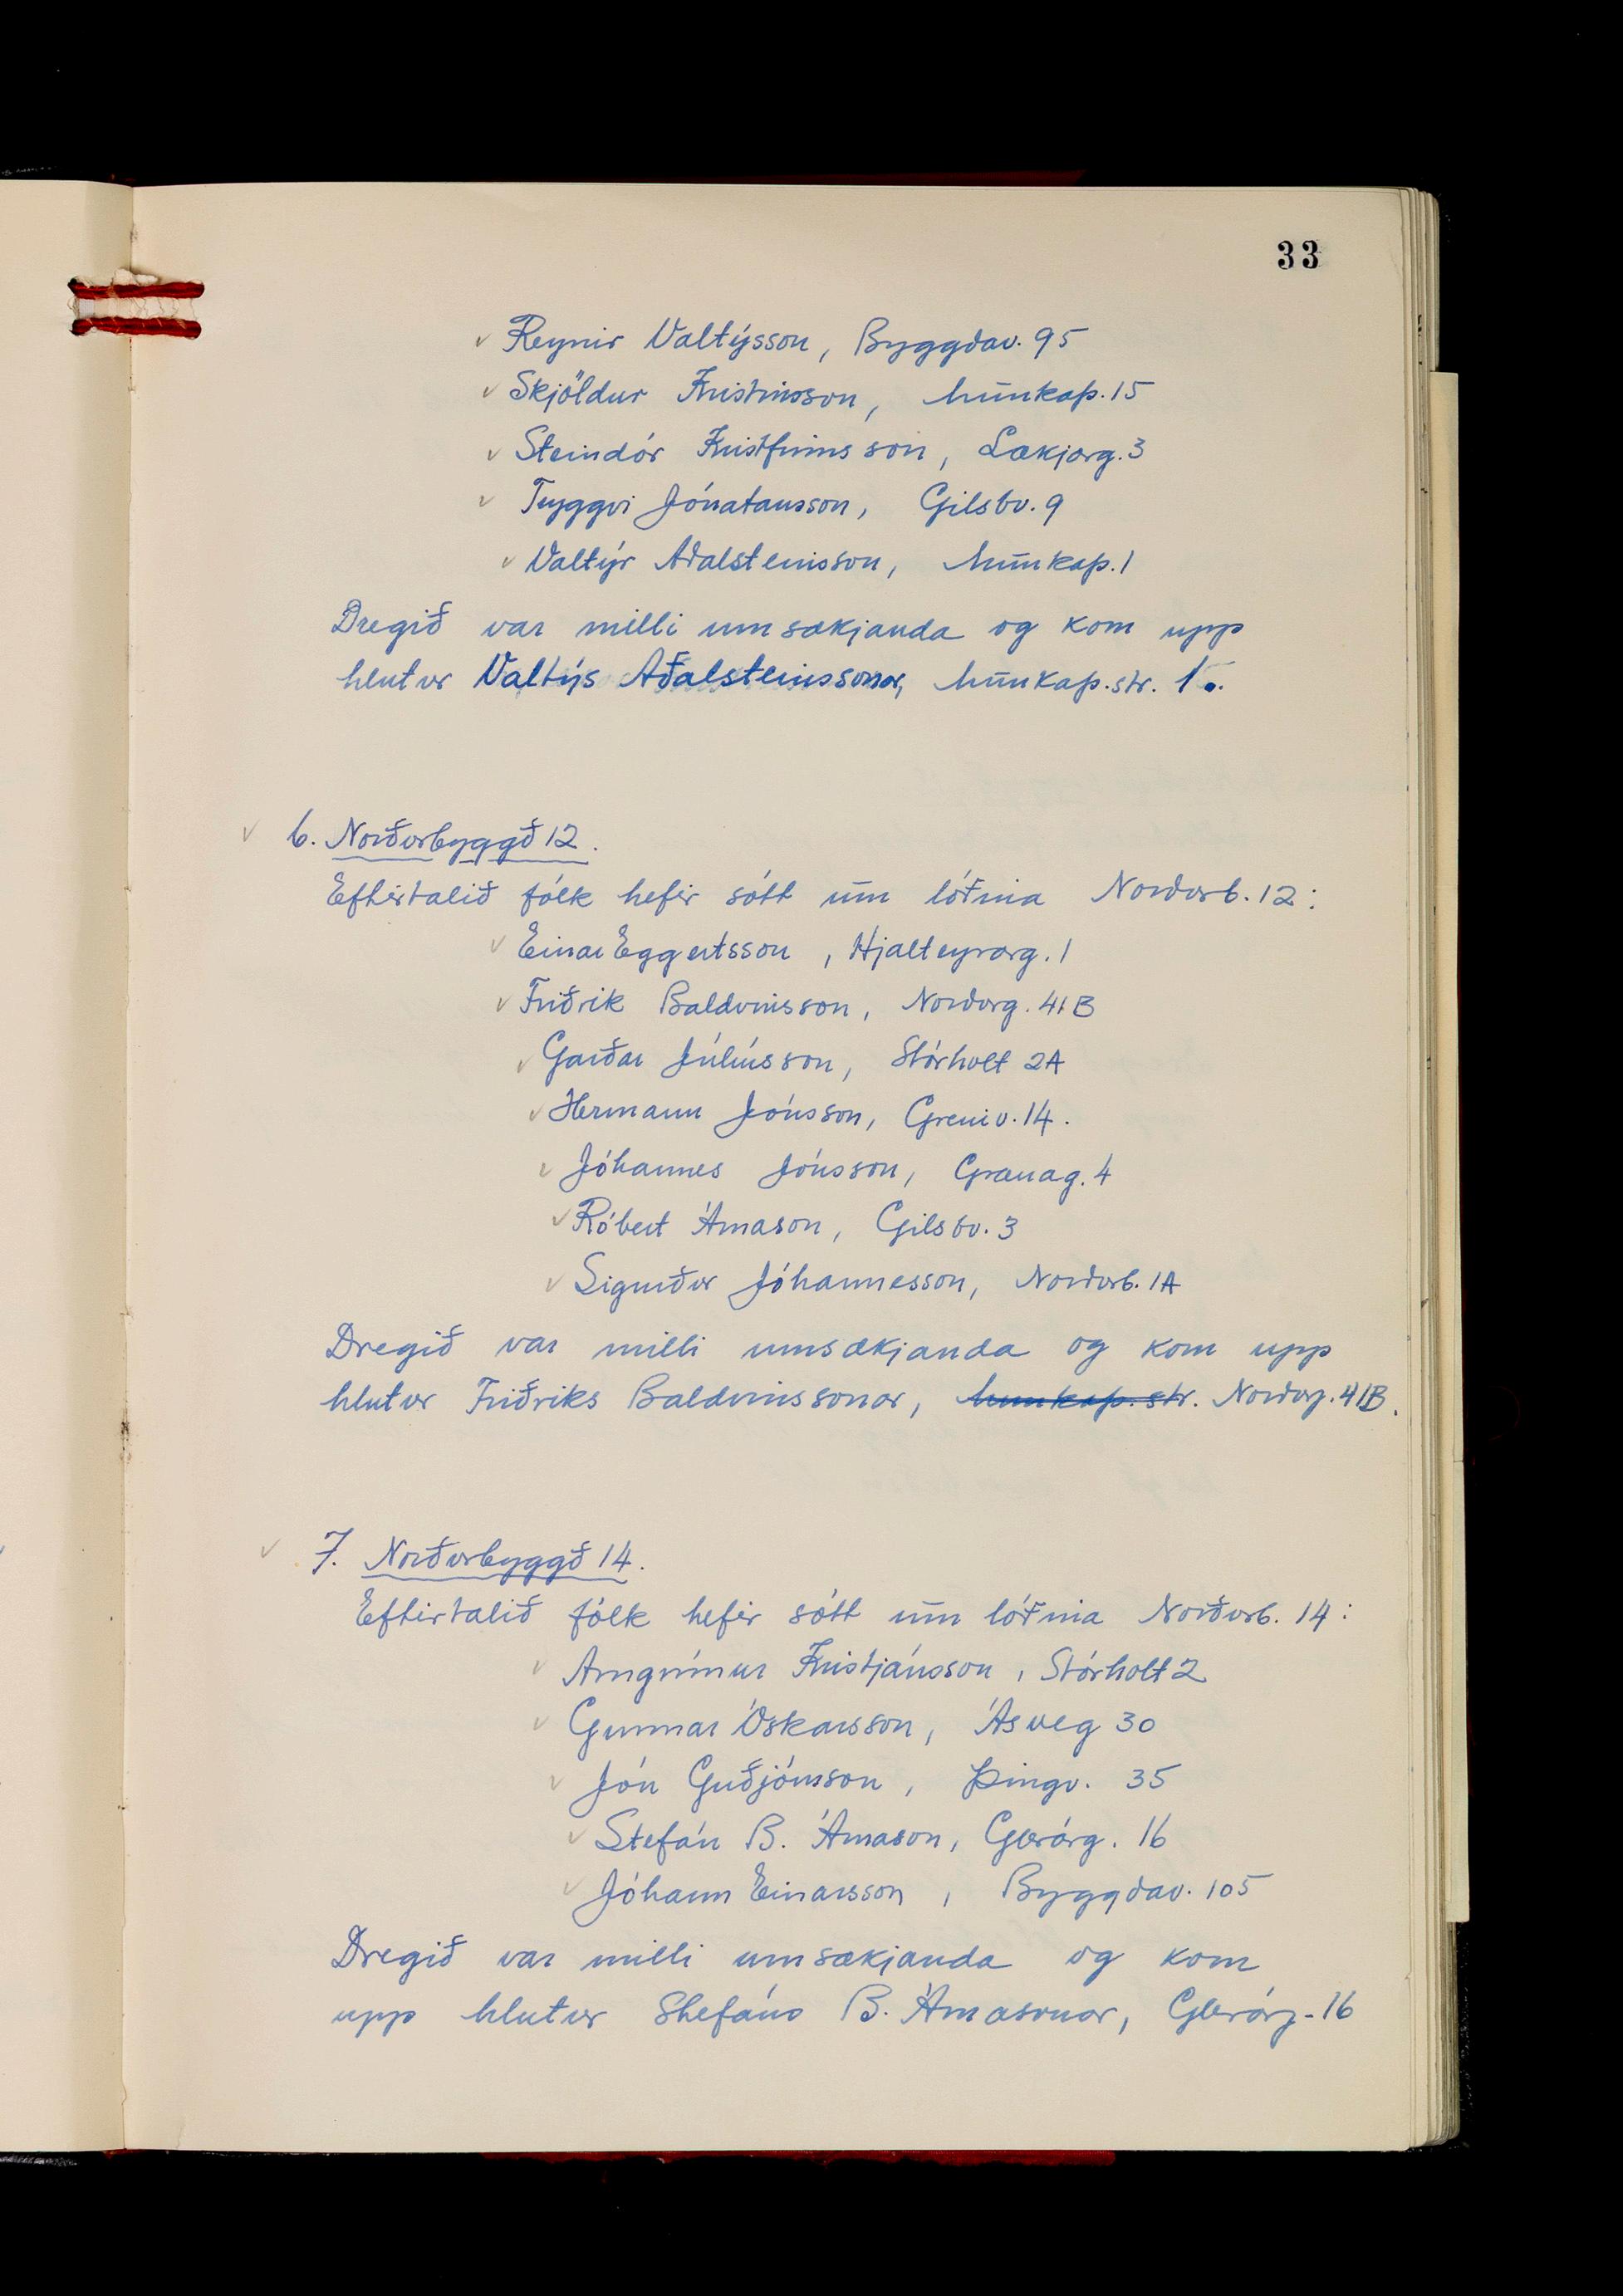 33
✓ Reynir Valtýsson, Byggðav. 95
✓ Skjöldur Kristinsson, Munkaþ. 15
✓ Steindór Kristfinnsson, Lækjarg. 3
✓ Tryggvi Jónatansson, Gilsbv. 9
✓ Valtýr Aðalsteinsson, Munkaþ. 1
Dregið var milli umsækjanda og kom upp
hlutur Valtýs Aðalsteinssonar, Munkaþ.str. 1.
✓ 6. Norðurbyggð 12.
Eftirtalið fólk hefir sótt um lóðina Norðurb. 12:
✓ Einar Eggertsson, Hjalteyrarg. 1
✓ Friðrik Baldvinsson, Norðurg. 41B
✓ Garðar Júlíusson, Stórholt 2A
✓ Hermann Jónsson, Greniv. 14.
✓ Jóhannes Jónsson, Grænag. 4
✓ Róbert Árnason, Gilsbv. 3
✓ Sigurður Jóhannesson, Norðurb. 1A
Dregið var milli umsækjanda og kom upp
hlutur Friðriks Baldvinssonar, Munkaþ.str. Norðurg. 41B.
✓ 7. Norðurbyggð 14.
Eftirtalið fólk hefir sótt um lóðina Norðurb. 14:
✓ Arngrímur Kristjánsson, Stórholt 2
✓ Gunnar Óskarsson, Ásveg 30
✓ Jón Guðjónsson, Þingv. 35
✓ Stefán B. Árnason, Glerárg. 16
✓ Jóhann Einarsson, Byggðav. 105
Dregið var milli umsækjanda og kom
upp hlutur Stefáns B. Árnasonar, Glerárg. 16